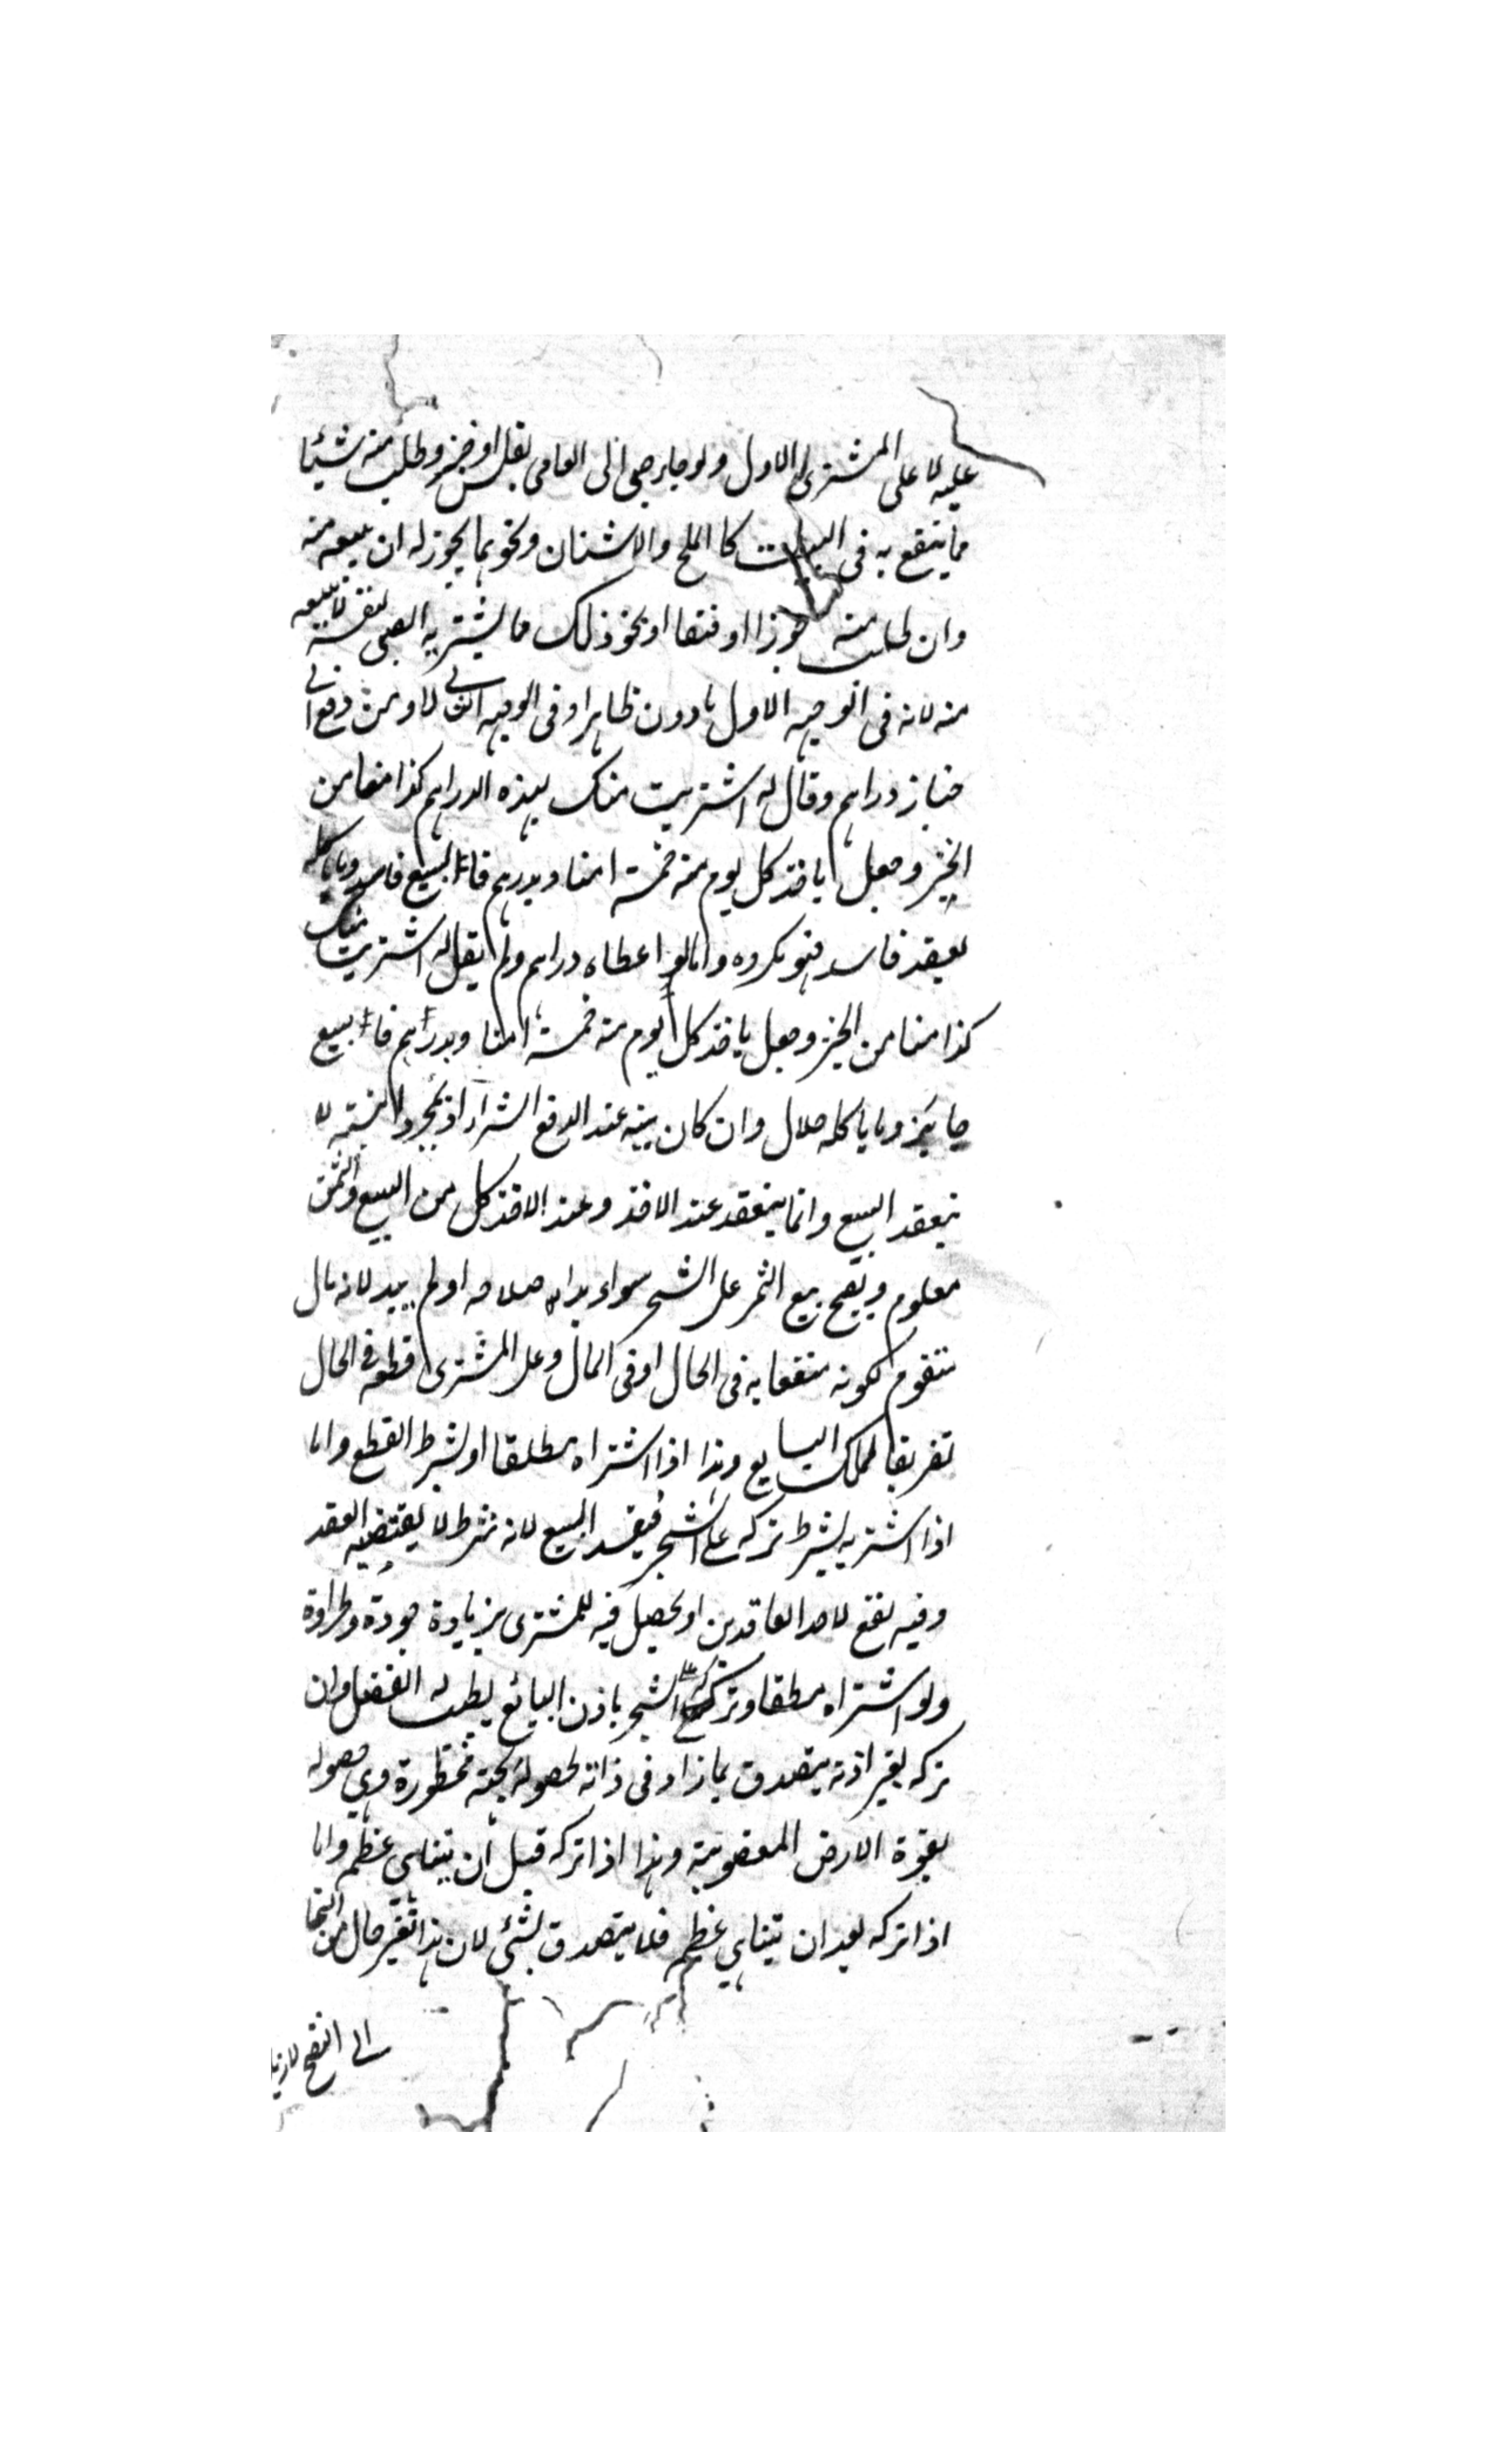 عليه لا على المشترى الاول ولو جاء صبى الى العامى بفلس او خبز وطلب منه شيئا
مما ينتفع به فى البيت كالملح والاشنان ونحوهما يجوز له ان يبيعه منه
وان طلب منه جوزا او فستقا او نحو ذلك مما يشتريه الصبى لنفسه لا يبيعه
منه لانه فى الوجه الاول ماذون ظاهرا وفى الوجه الثانى لا ومن دفع الى
خباز دراهم وقال له اشتريت منك بهذه الدراهم كذا منا من
الخبز وجعل ياخذ كل يوم منه خمسة امنا وبدرهم فالبيع فاسد وما ياكله
بعقد فاسد فهو مكروه واما لو اعطاه دراهم ولم يقل له اشتريت منك
كذا منا من الخبز وجعل ياخذ كل يوم منه خمسة امنا وبدراهم فا بيع
جايز وما ياكله حلال وان كان نيته عند الدفع الشراء اذ بمجرد النية لا
ينعقد البيع وانما ينعقد عند الاخذ وعند الاخذ كل من المبيع والثمن
معلوم ويصح بيع الثمر على الشجر سواء بدا صلاحه او لم يبد لانه مال
متقوم لكونه منتفعا به فى الحال او فى المال وعلى المشترى قطعه فى الحال
تفريقا لملك البايع وهذا اذا اشتراه مطلقا او بشرط القطع واما
اذا اشتريه بشرط تركه على الشجر فيفسد البيع لانه شرط لا يقتضيه العقد
وفيه نفع لاحد العاقدين او يحصل فيه للمشترى زيادة جودة وطراوة
ولو اشتراه مطلقا وتركه على الشجر باذن البائع يطيب له الفضل وان
تركه بغير اذنه يتصدق بما زاد فى ذاته لحصوله بجهة محظورة وهى حصوله
بقوة الارض المغصوبة وهذا اذا تركه قبل ان يتناهى عظمه واما
اذا تركه بعد ان تيناهى عظمه فلا يتصدق بشئى لان هذا تغير حال من
الى النضج لا